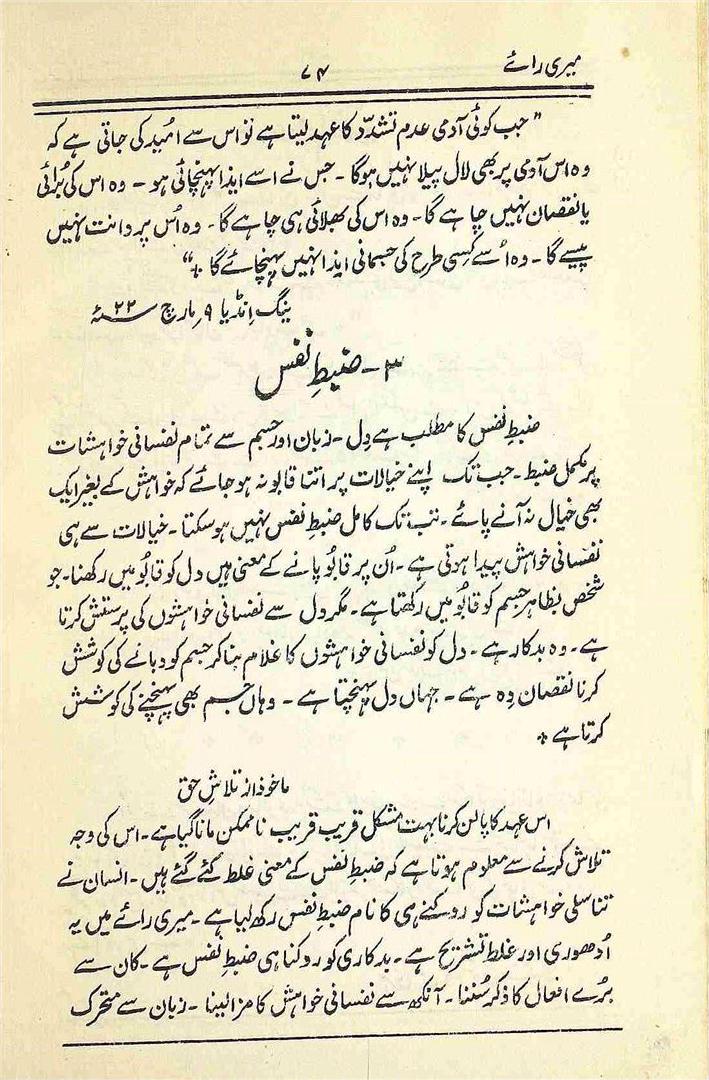 میری رائے
۷۴
"جب کوئی آدمی عدم تشدّد کا عہد لیتا ہے تو اس سے اُمید کی جاتی ہے کہ
وہ اس آدمی پر بھی لال پیلا نہیں ہوگا ۔ جس نے اسے ایذا پہنچائی ہو ۔ وہ اس کی بُرائی
یا نقصان نہیں چاہے گا ۔ وہ اس کی بھلائی ہی چاہے گا ۔ وہ اُس پر دانت نہیں
پیسے گا ۔ وہ اُسے کِسی طرح کی جسمانی ایذا نہیں پہنچائے گا *"
ینگ انڈیا ۹ ؍ مارچ ۲۲ ؁ء
۳ ۔ ضبطِ نفس
ضبطِ نفس کا مطلب ہے دِل ۔ زبان اور جسم سے تمام نفسانی خواہشات
پر مکمل ضبط ۔ جب تک اپنے خیالات پر اتنا قابو نہ ہو جائے کہ خواہش کے بغیر ایک
بھی خیال نہ آنے پائے ۔ تب تک کامل ضبطِ نفس نہیں ہو سکتا ۔ خیالات سے ہی
نفسانی خواہش پیدا ہوتی ہے ۔ اُن پر قابُو پانے کے معنی ہیں دل کو قابُو میں رکھنا ۔ جو
شخص بظاہر جسم کو قابُو میں رکھتا ہے ۔ مگر دل سے نفسانی خواہشوں کی پرستش کرتا
ہے ۔ وہ بدکار ہے ۔ دل کو نفسانی خواہشوں کا غلام بنا کر جسم کو دبانے کی کوشش
کرنا نقصان دِہ ہے ۔ جہاں دل پہنچتا ہے ۔ وہاں جسم بھی پہنچنے کی کوشش
کرتا ہے *
ماخوذ از تلاشِ حق
اس عہد کا پالن کرنا بہت مشکل قریب قریب ناممکن مانا گیا ہے ۔ اس کی وجہ
تلاش کرنے سے معلوم ہوتا ہے کہ ضبطِ نفس کے معنی غلط لئے گئے ہیں ۔ انسان نے
تناسلی خواہشات کو روکنے ہی کا نام ضبطِ نفس رکھ لیا ہے ۔ میری رائے میں یہ
اُدھوری اور غلط تشریح ہے ۔ بدکاری کو روکنا ہی ضبطِ نفس ہے ۔ کان سے
بُرے افعال کا ذکر سُننا ۔ آنکھ سے نفسانی خواہش کا مزا لینا ۔ زبان سے متحرک